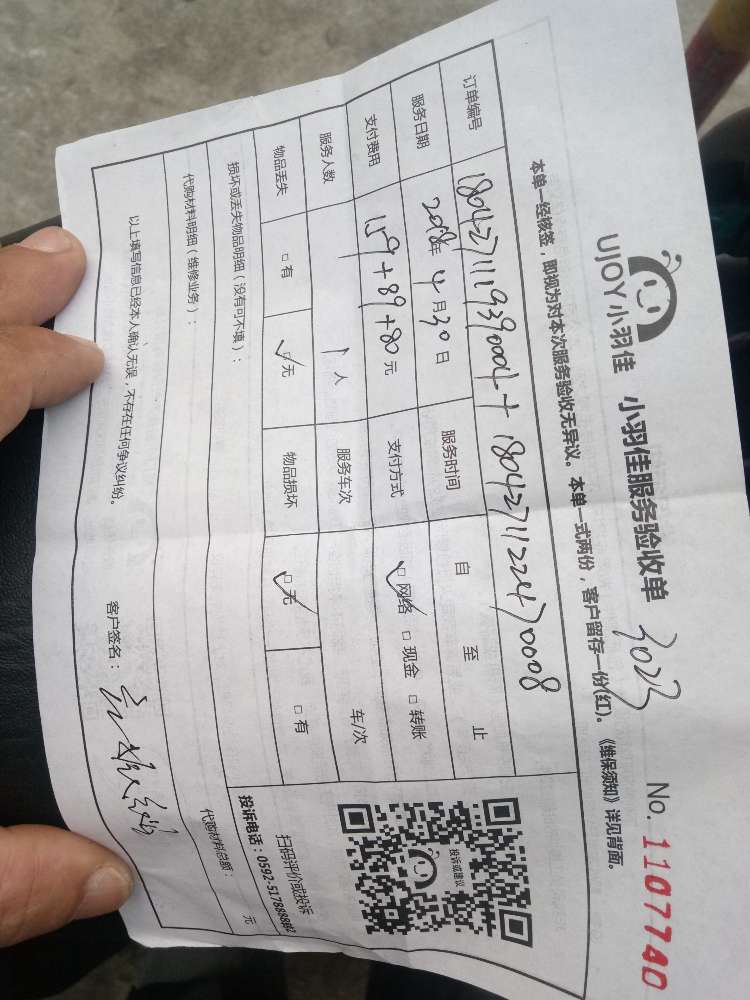 UJOY 小羽佳 小羽佳服务验收单 3023 No. 1107740
本单一经核签，即视为对本次服务验收无异议。本单一式两份，客户留存一份(红)。《维保须知》详见背面。
订单编号 1804271119390004 + 1804271122470008
服务日期 2018年 4月30日 服务时间 自 至 止
支付费用 159+89+80元 支付方式 ☑网络 □现金 □转账
服务人数 1人 服务车次 车/次
物品丢失 □有 ☑无 物品损坏 ☑无 □有
损坏或丢失物品明细（没有可不填）：
代购材料明细（维修业务）：
代购材料总额： 元
以上填写信息已经本人确认无误，不存在任何争议纠纷。 客户签名：
投诉或建议
扫码评价或投诉